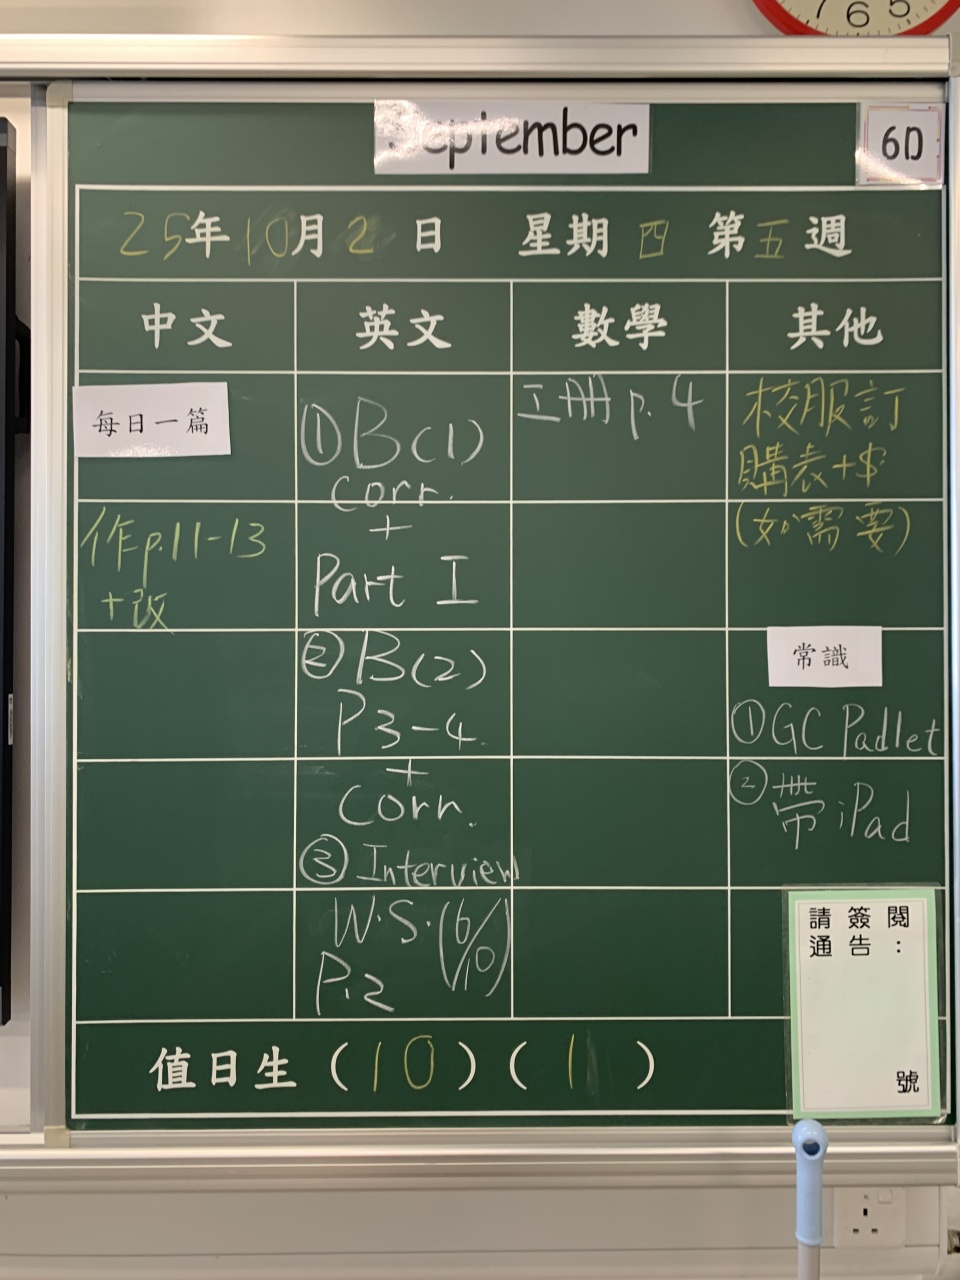 7 6 5
September
6D
25年10月2日 星期四 第五週
中文 英文 數學 其他
每日一篇
作p.11-13
+改
①B(1)
corr.
+
Part I
②B(2)
P3-4
+
Corr.
③Interview
W.S.(6/10)
P.2
工冊 p.4
校服訂
購表+$
(如需要)
常識
①GC Padlet
②帶iPad
請簽閱
通告：
號
值日生（10）（11）